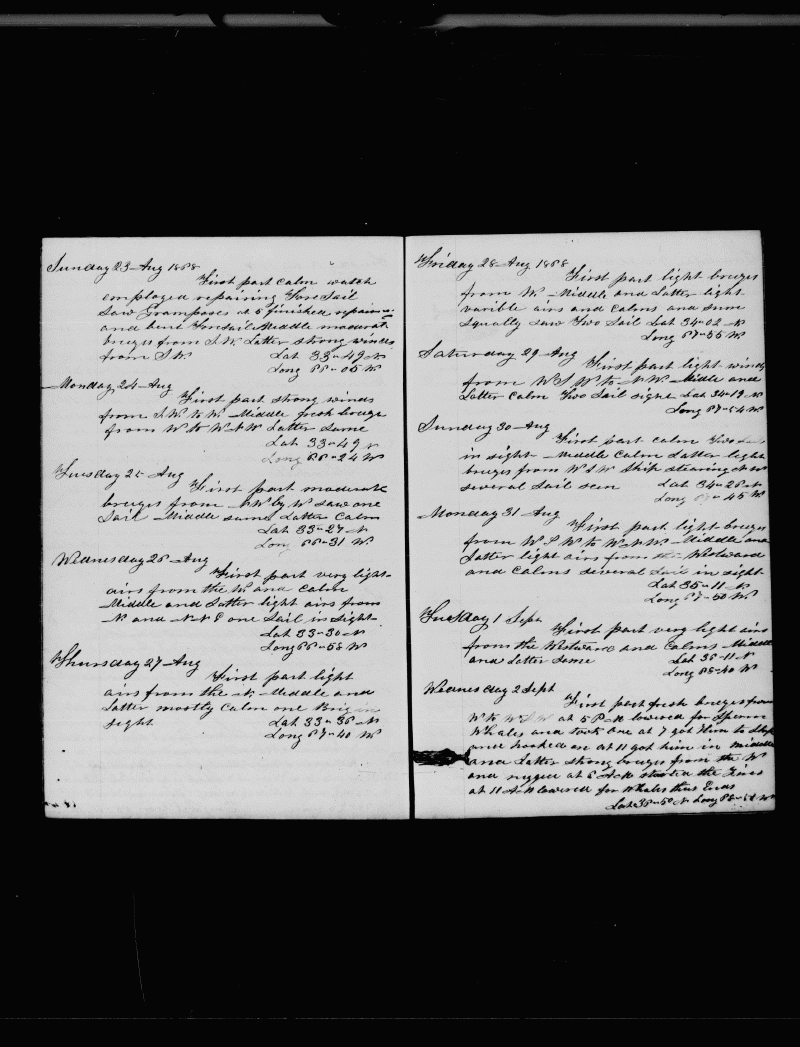 Sunday 23 Aug 1868
First part calm watch
employed repairing Fore Sail
Saw Grampases at 5 finished repairing
and bent Foresail Middle moderate
brezes from S.W. Latter strong winds
from S.W. Lat 33-49 N
Long 66-05 W
Monday 24 Aug
First part strong winds
from S.W. to W. Middle fresh breze
from W to W N W Latter same
Lat 33-49 N
Long 66-24 W
Tuesday 25 Aug
First part moderate
brezes from N W by W saw one
Sail Middle same Latter Calm
Lat 33-27 N
Long 66-31 W.
Wednesday 26 Aug
First part very light
airs from the W. and Calm
Middle and Latter light airs from
N and one Sail in Sight
Lat 33-30 N
Long 66-58 W
Thursday 27 Aug
First part light
airs from the N. Middle and
Latter mostly Calm one Brig in
sight Lat 33-36 N
Long 67-40 W
Friday 28 Aug 1868
First part light brezes
from W. Middle and Latter light
varible airs and Calms and sum
Squally Saw Two Sail Lat 34-02 N
Long 67-55 W
Saturday 29 Aug
First part light winds
from W S W to N W. Middle and
Latter Calm Two Sail signt Lat 34-19 N
Long 67-54 W
Sunday 30 Aug
First part calm Two
in sight Middle Calm Latter light
brezes from W S W Ship stearing
several Sail seen Lat 34-26 N
Long 45 W
Monday 31 Aug
First part light brezes
from W. S. W to W.N.W. Middle and
Latter light airs from the Westward
and Calms several Sail in sight
Lat 35-11 N
Long 67-50 W.
Tuesday 1 Sept
First part very light airs
from the Westward and Calms Middle
and Latter Same Lat 36-11 N
Long 68-40 W
Wednesday 2 Sept
First part fresh brezes from
W to W S W at 5 P M lowered for Sperm
Whales and took one at 7 got Him to Ship
and hooked on at 11 got him in middle
and Latter strong brezes from the W
and rugged at 6 A M started the Fires
at 11 A M lowered for Whales thus Ends
Lat 36-50 N Long 68 W